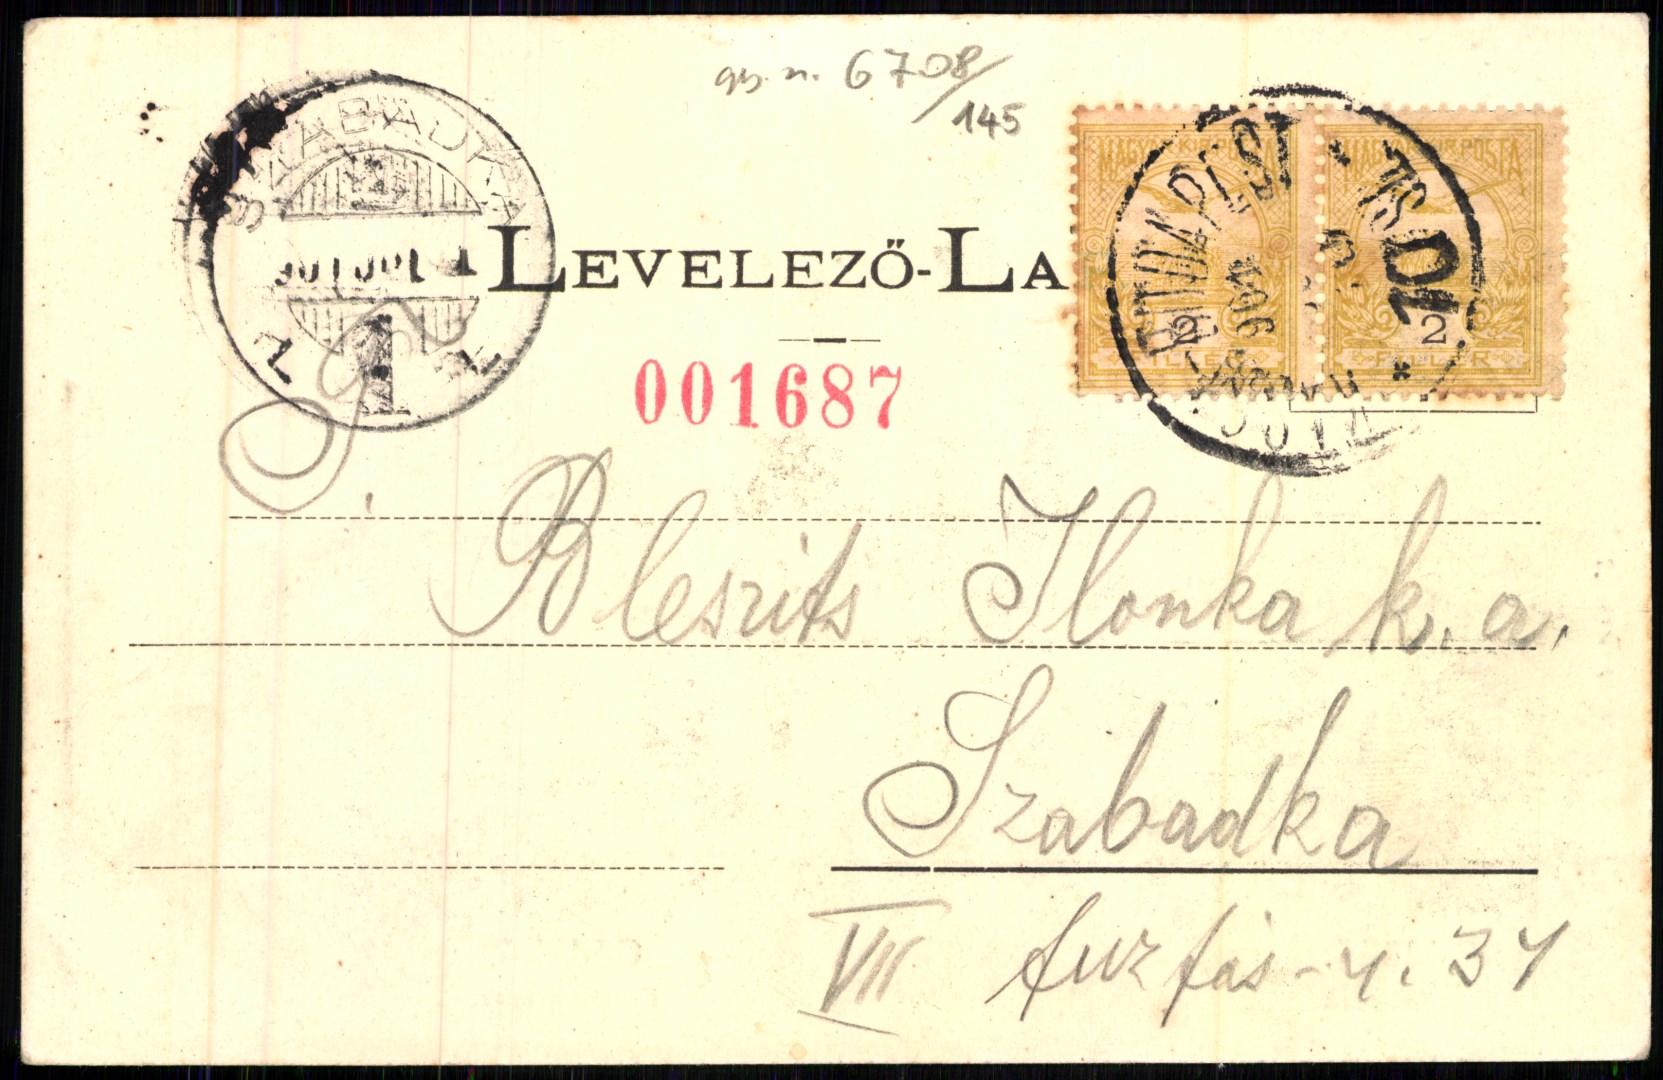 6708/145
SZABADKA
901 JUL 1
LEVELEZŐ-LA
MAGYAR KIR. POSTA
2
FILLÉR
MAGYAR KIR. POSTA
2
FILLÉR
BUDAPEST
001687
Bleszits Ilonka k. a.
Szabadka
VII fuzfás-u. 34